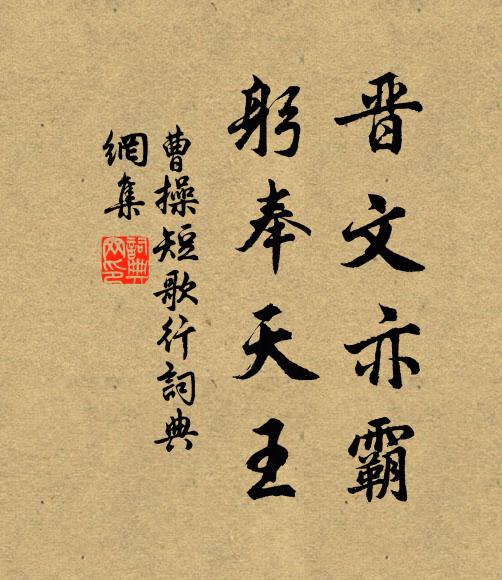 晋文亦霸
躬奉天王
曹操短歌行詞典
網集
詞典
网印